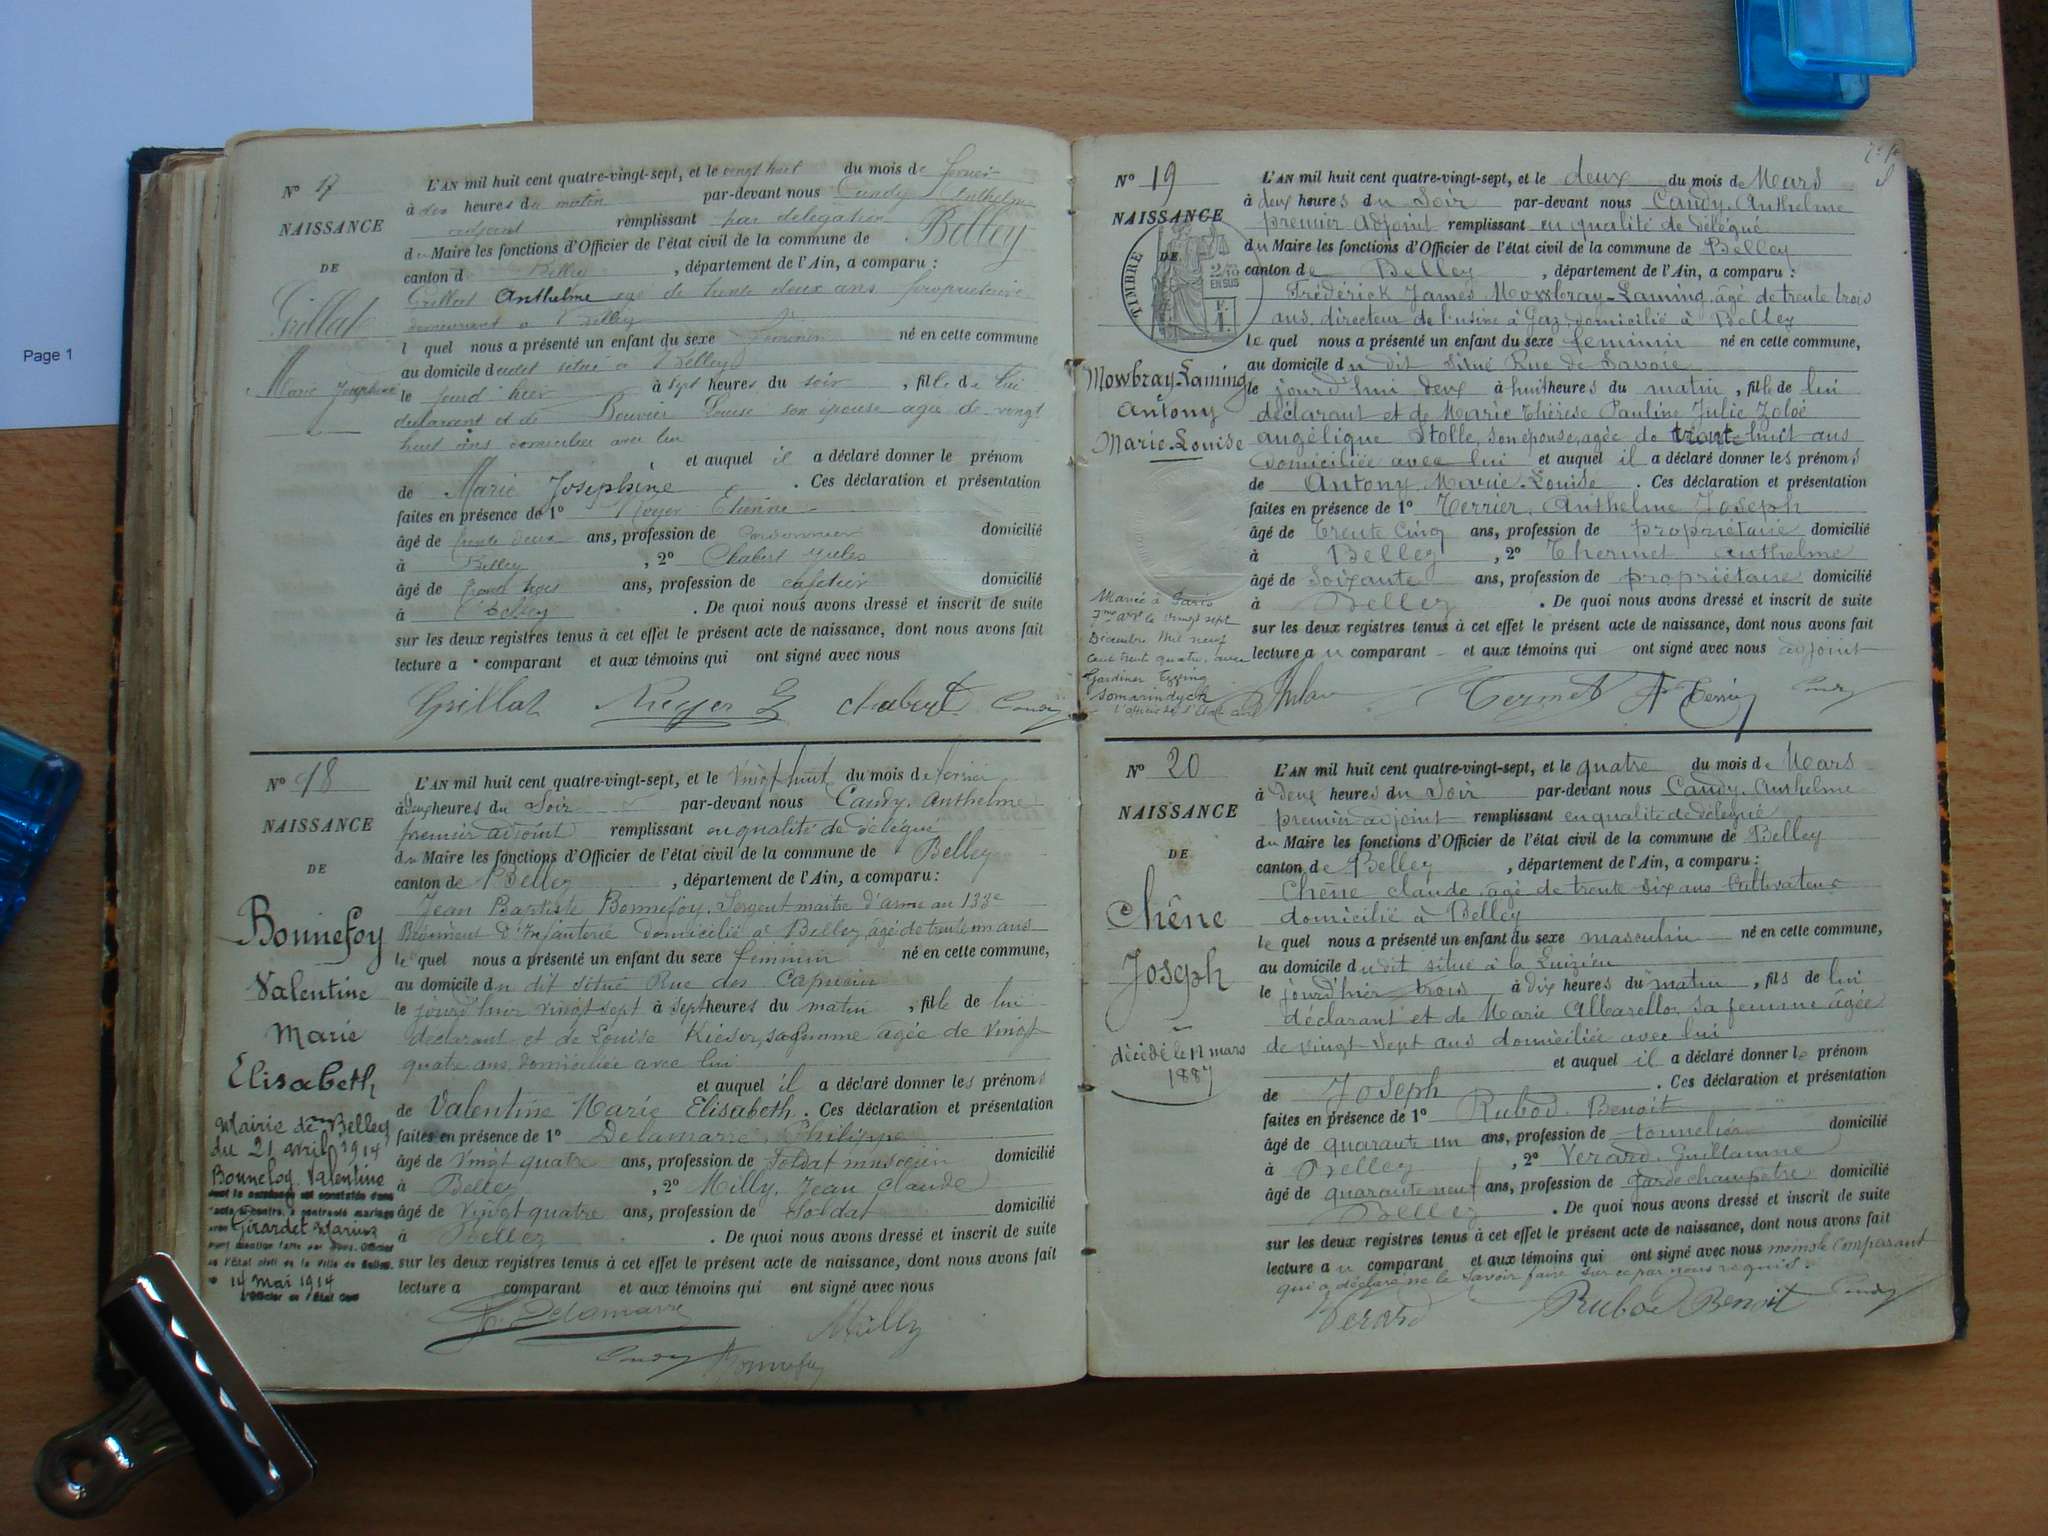 Page 1
Nº 17
NAISSANCE
DE
Grillat
Marie Joséphine
L'AN mil huit cent quatre-vingt-sept, et le vingt huit du mois de février
à dix heures du matin par-devant nous Candy Anthelme
adjoint remplissant par délégation
du Maire les fonctions d'Officier de l'état civil de la commune de Belley
canton de Belley, département de l'Ain, a comparu :
Grillat Anthelme agé de trente deux ans propriétaire
demeurant à Belley
lequel nous a présenté un enfant du sexe féminin né en cette commune
au domicile dudit situé à Belley
le jourd'hier à sept heures du soir, fille de lui
déclarant et de Bouvier Louise son épouse agée de vingt
huit ans domiciliée avec lui
et auquel il a déclaré donner le prénom
de Marie Joséphine. Ces déclaration et présentation
faites en présence de 1º Etienne
âgé de trente deux ans, profession de Cordonnier domicilié
à Belley, 2º Chabert Jules
âgé de ans, profession de cafetier domicilié
à Belley. De quoi nous avons dressé et inscrit de suite
sur les deux registres tenus à cet effet le présent acte de naissance, dont nous avons fait
lecture a comparant et aux témoins qui ont signé avec nous
Grillat Chabert Candy
Nº 18
NAISSANCE
DE
Bonnefoy
Valentine
Marie
Elisabeth
Mairie de Belley
du 21 avril 1914
Bonnefoy Valentine
dont la naissance est constatée dans
l'acte ci-contre, a contracté mariage
avec Girardet Marius
14 Mai 1914
L'Officier de l'État Civil
L'AN mil huit cent quatre-vingt-sept, et le vingt huit du mois de février
à deux heures du Soir par-devant nous Candy, Anthelme
premier adjoint remplissant en qualité de délégué
du Maire les fonctions d'Officier de l'état civil de la commune de Belley
canton de Belley, département de l'Ain, a comparu :
Jean Baptiste Bonnefoy, Sergent maitre d'arme au 133e
Régiment d'Infanterie domicilié à Belley, âgé de trente un ans
lequel nous a présenté un enfant du sexe féminin né en cette commune,
au domicile du dit situé Rue des Capucins
le jourd'hier vingt sept à sept heures du matin, fille de lui
déclarant et de Louise Kieser, sa femme agée de vingt
quatre ans domiciliée avec lui
et auquel il a déclaré donner les prénoms
de Valentine Marie Elisabeth. Ces déclaration et présentation
faites en présence de 1º Delamarre Philippe
âgé de vingt quatre ans, profession de Soldat musicien domicilié
à Belley, 2º Milly, Jean Claude
âgé de vingt quatre ans, profession de Soldat domicilié
à Belley. De quoi nous avons dressé et inscrit de suite
sur les deux registres tenus à cet effet le présent acte de naissance, dont nous avons fait
lecture a comparant et aux témoins qui ont signé avec nous
P. Delamarre Milly
Candy Bonnefoy
Nº 19
NAISSANCE
DE
TIMBRE
2/10 EN SUS
Mowbray-Laming
Antony
Marie-Louise
Marié à Paris
7me arrt le vingt sept
Décembre mil neuf
cent trente quatre, avec
Gardiner Egging
L'officier de l'état civil
L'AN mil huit cent quatre-vingt-sept, et le deux du mois de Mars
à deux heures du Soir par-devant nous Candy, Anthelme
premier adjoint remplissant en qualité de délégué
du Maire les fonctions d'Officier de l'état civil de la commune de Belley
canton de Belley, département de l'Ain, a comparu :
Frédérick James Mowbray-Laming, âgé de trente trois
ans, directeur de l'usine à Gaz, domicilié à Belley
lequel nous a présenté un enfant du sexe féminin né en cette commune,
au domicile du dit situé Rue de Savoie
le jourd'hui deux à huit heures du matin, fille de lui
déclarant et de Marie Thérèse Pauline Julie Zoloé
angélique Stolle, son épouse, agée de trente huit ans
domiciliée avec lui et auquel il a déclaré donner les prénoms
de Antony Marie-Louise. Ces déclaration et présentation
faites en présence de 1º Terrier, Anthelme Joseph
âgé de trente cinq ans, profession de propriétaire domicilié
à Belley, 2º Thermet Anthelme
âgé de Soixante ans, profession de propriétaire domicilié
à Belley. De quoi nous avons dressé et inscrit de suite
sur les deux registres tenus à cet effet le présent acte de naissance, dont nous avons fait
lecture au comparant et aux témoins qui ont signé avec nous adjoint
Termet Candy
Nº 20
NAISSANCE
DE
Chêne
Joseph
décédé le 11 mars
1887
L'AN mil huit cent quatre-vingt-sept, et le quatre du mois de Mars
à deux heures du Soir par-devant nous Candy, Anthelme
premier adjoint remplissant en qualité de délégué
du Maire les fonctions d'Officier de l'état civil de la commune de Belley
canton de Belley, département de l'Ain, a comparu :
Chêne Claude agé de trente six ans Cultivateur
domicilié à Belley
lequel nous a présenté un enfant du sexe masculin né en cette commune,
au domicile du dit situé à la
le jourd'hier trois à dix heures du matin, fils de lui
déclarant et de Marie Albarello, sa femme âgée
de vingt sept ans domiciliée avec lui
et auquel il a déclaré donner le prénom
de Joseph. Ces déclaration et présentation
faites en présence de 1º Rubod, Benoit
âgé de quarante un ans, profession de tonnelier domicilié
à Belley, 2º Verard, Guillaume
âgé de quarante neuf ans, profession de garde champêtre domicilié
Belley. De quoi nous avons dressé et inscrit de suite
sur les deux registres tenus à cet effet le présent acte de naissance, dont nous avons fait
lecture au comparant et aux témoins qui ont signé avec nous moins le comparant
qui a déclaré ne le savoir faire sur ce par nous requis.
Verard Rubod Benoit Candy